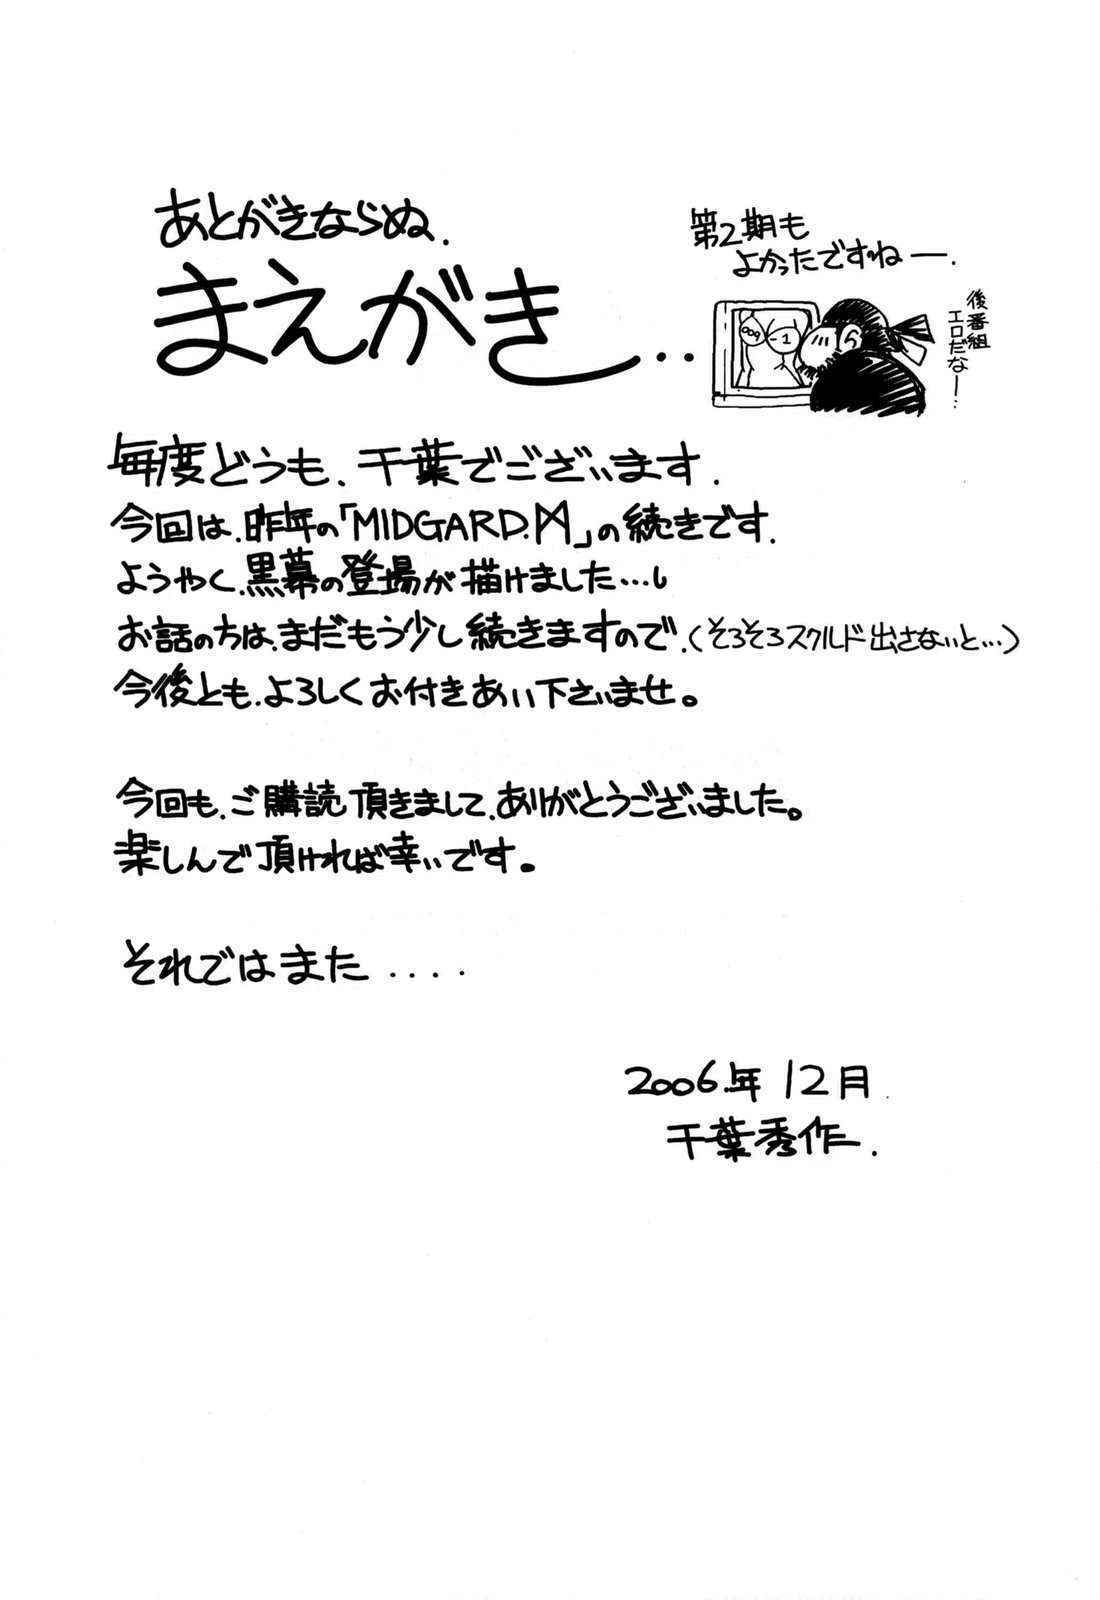 あとがきならぬ.
まえがき..
第2期も
よかったですねー.
後番組
エロだなー..
009
-1
毎度どうも、千葉でございます.
今回は、昨年の「MIDGARD.M」の続きです.
ようやく、黒幕の登場が描けました…
お話の方は、まだもう少し続きますので、(そろそろスクルド出さないと…)
今後とも、よろしくお付きあい下さいませ。
今回も、ご購読頂きまして、ありがとうございました。
楽しんで頂ければ幸いです。
それではまた....
2006年12月
千葉秀作.